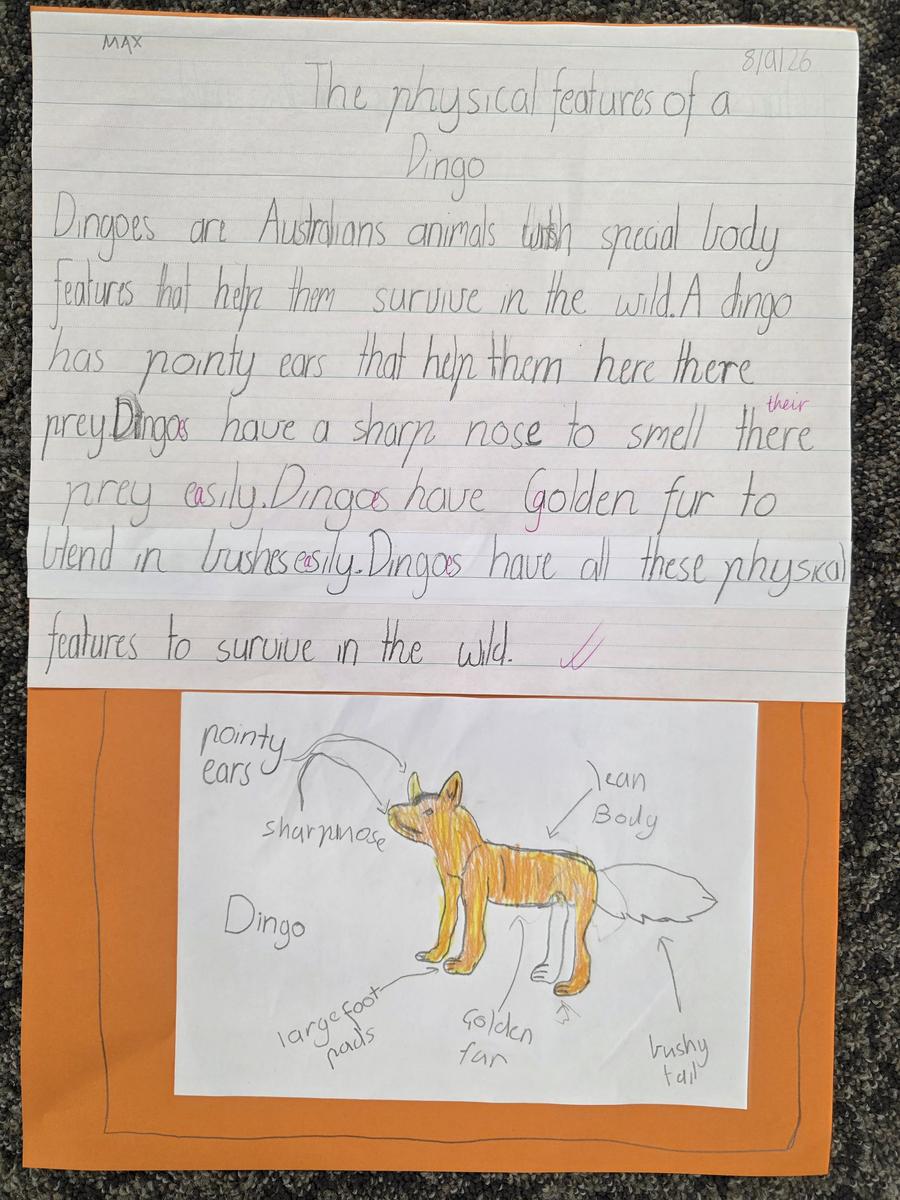 MAX
8/9/26
The physical features of a
Dingo
Dingoes are Australians animals with special body
features that help them survive in the wild. A dingo
has pointy ears that help them here there
their
prey Dingoes have a sharp nose to smell there
prey easily. Dingoes have Golden fur to
blend in bushes easily. Dingoes have all these physical
features to survive in the wild.
pointy
ears
sharp nose
lean
Body
Dingo
large foot
pads
Golden
fur
bushy
tail